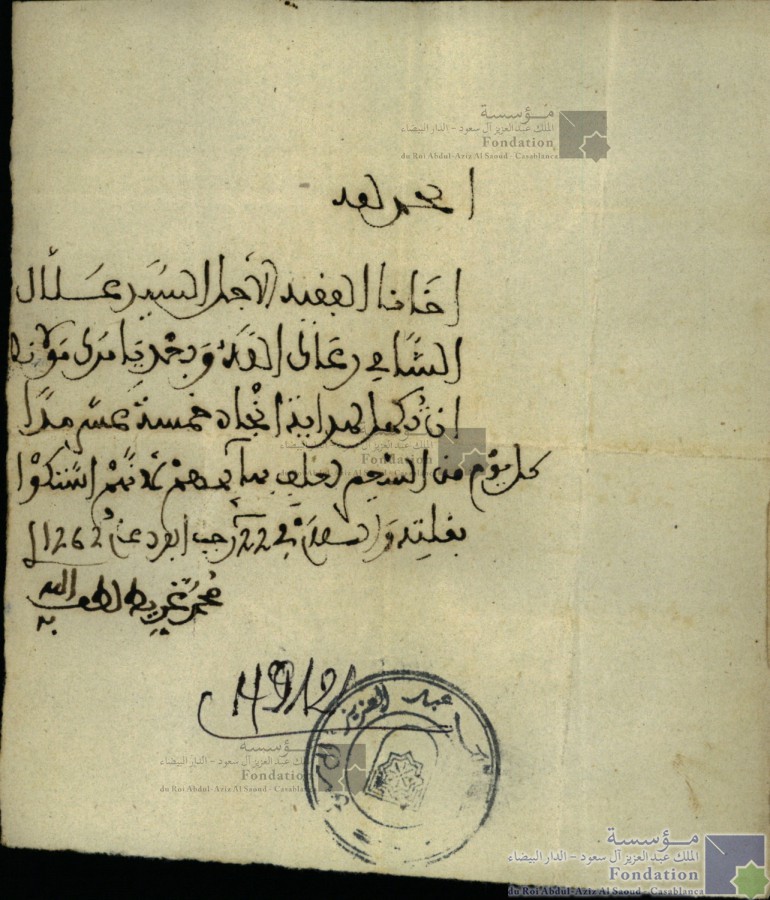 مؤسسة
الملك عبد العزيز آل سعود - الدار البيضاء
Fondation
du Roi Abdul-Aziz Al Saoud - Casablanca
الحمد لله
اخانا الفقيه الأجل السيد علال
الشامي رعاك الله وبعد يامرك مولانا
ان تكمل لهداية انجاه خمسة عشر مدا
كل يوم من الشعير لعلف بهايمهم لأنهم اشتكوا
بقلته والسلام في 22 رجب الفرد عام 1262
محمد غريط لطف الله
به
مؤسسة
الملك عبد العزيز آل سعود - الدار البيضاء
Fondation
du Roi Abdul-Aziz Al Saoud - Casablanca
مؤسسة
الملك عبد العزيز آل سعود - الدار البيضاء
Fondation
du Roi Abdul-Aziz Al Saoud - Casablanca